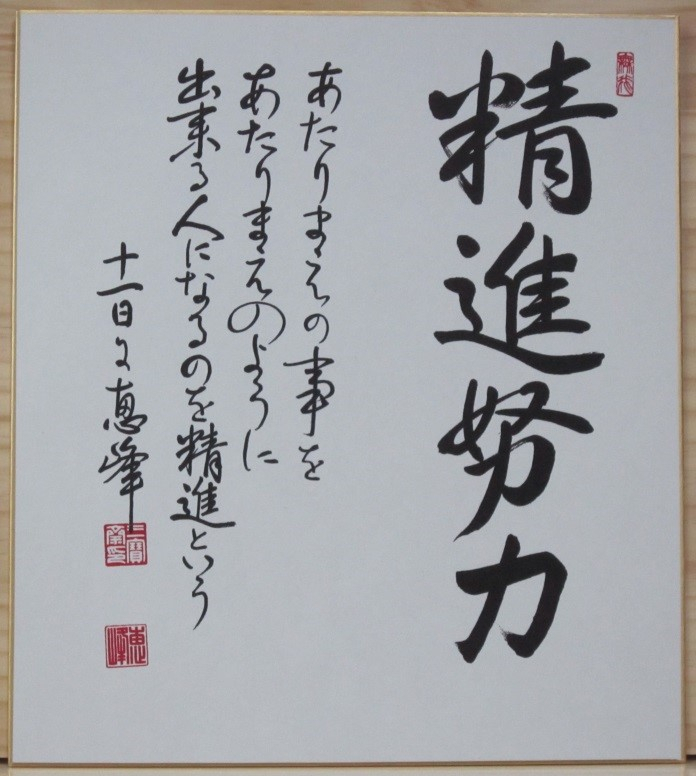 精進努力
あたりまえの事を
あたりまえのように
出来る人になるのを精進という
十一日 恵峰
恵峰